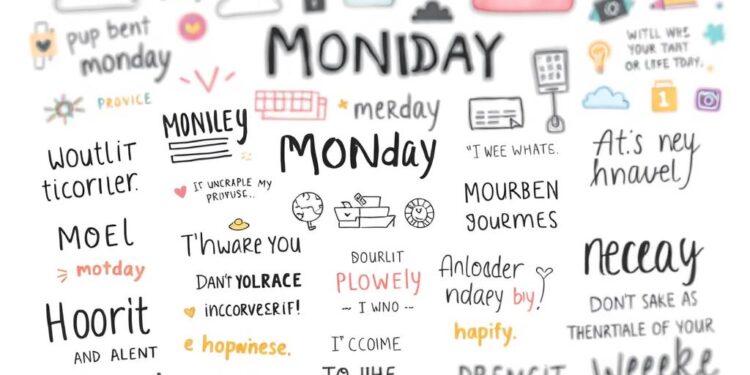 pup bent
monday
MONIDAY
WITLL WHS
YOUR TART
OR LIFE TODAY.
PROVICE
MONILEY
merday
MONday
WOUTLIT
TICORILER.
"I WEE WHATE.
At.s ney
hnavel)
IT UNCRAPLE MY
PROVUSE..
MOURBEN
gourmes
MOEL
motday
T'hware you
BOURLIT
PLOWELY
~ I WNO ~
Anloader
ndaey biy!
neceay
DAN'T YOLRACE
INCCORVESRIF!
DON'T SAKE AS
THENRTIALE OF YOUR
Hoorit
AND ALENT
e hopwnese.
I'CCOIME
hapify.